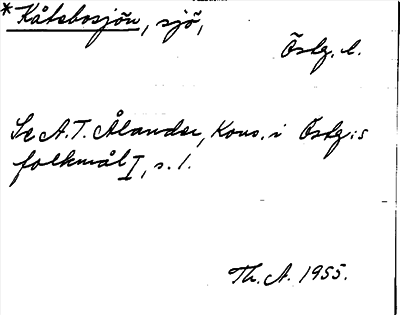 *Kåtebosjön, sjö,
Östg. l.
Se A.T. Ålander, Kons. i Östg:s
folkmål I, s. 1.
Th. A. 1955.